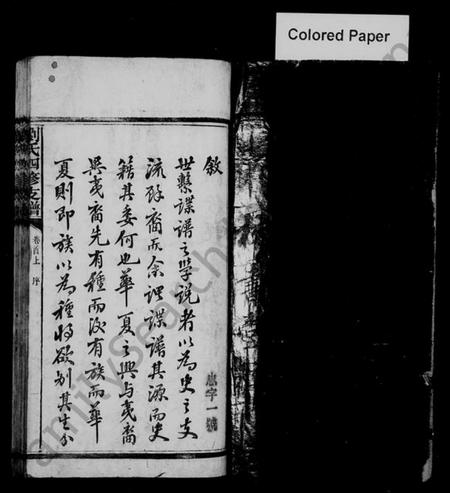 Colored Paper
敘
世繫諜譜之學說者以為史之支
流餘裔而余謂諜譜其源而史
籍其委何也華夏之興與夷裔
異夷裔先有種而後有族而華
夏則即族以為種將欲別其生分
忠字一號
劉氏四修支譜
卷首上 序